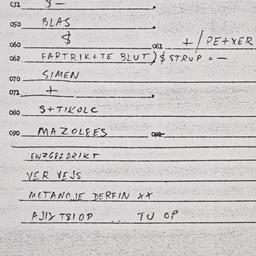 031 $ —
050 BLAS
$
060 061 + / PE+YER
062 FAPTRIK+TE BLUT) $ STRUP = —
070 SIMEN
071 +
080 S+TIKOLC
090 MAZOLEES
EWZGEZDRIKT
VER VEJS
METANOJE DERFIN XX
AJIX T8IOP .. TU OP